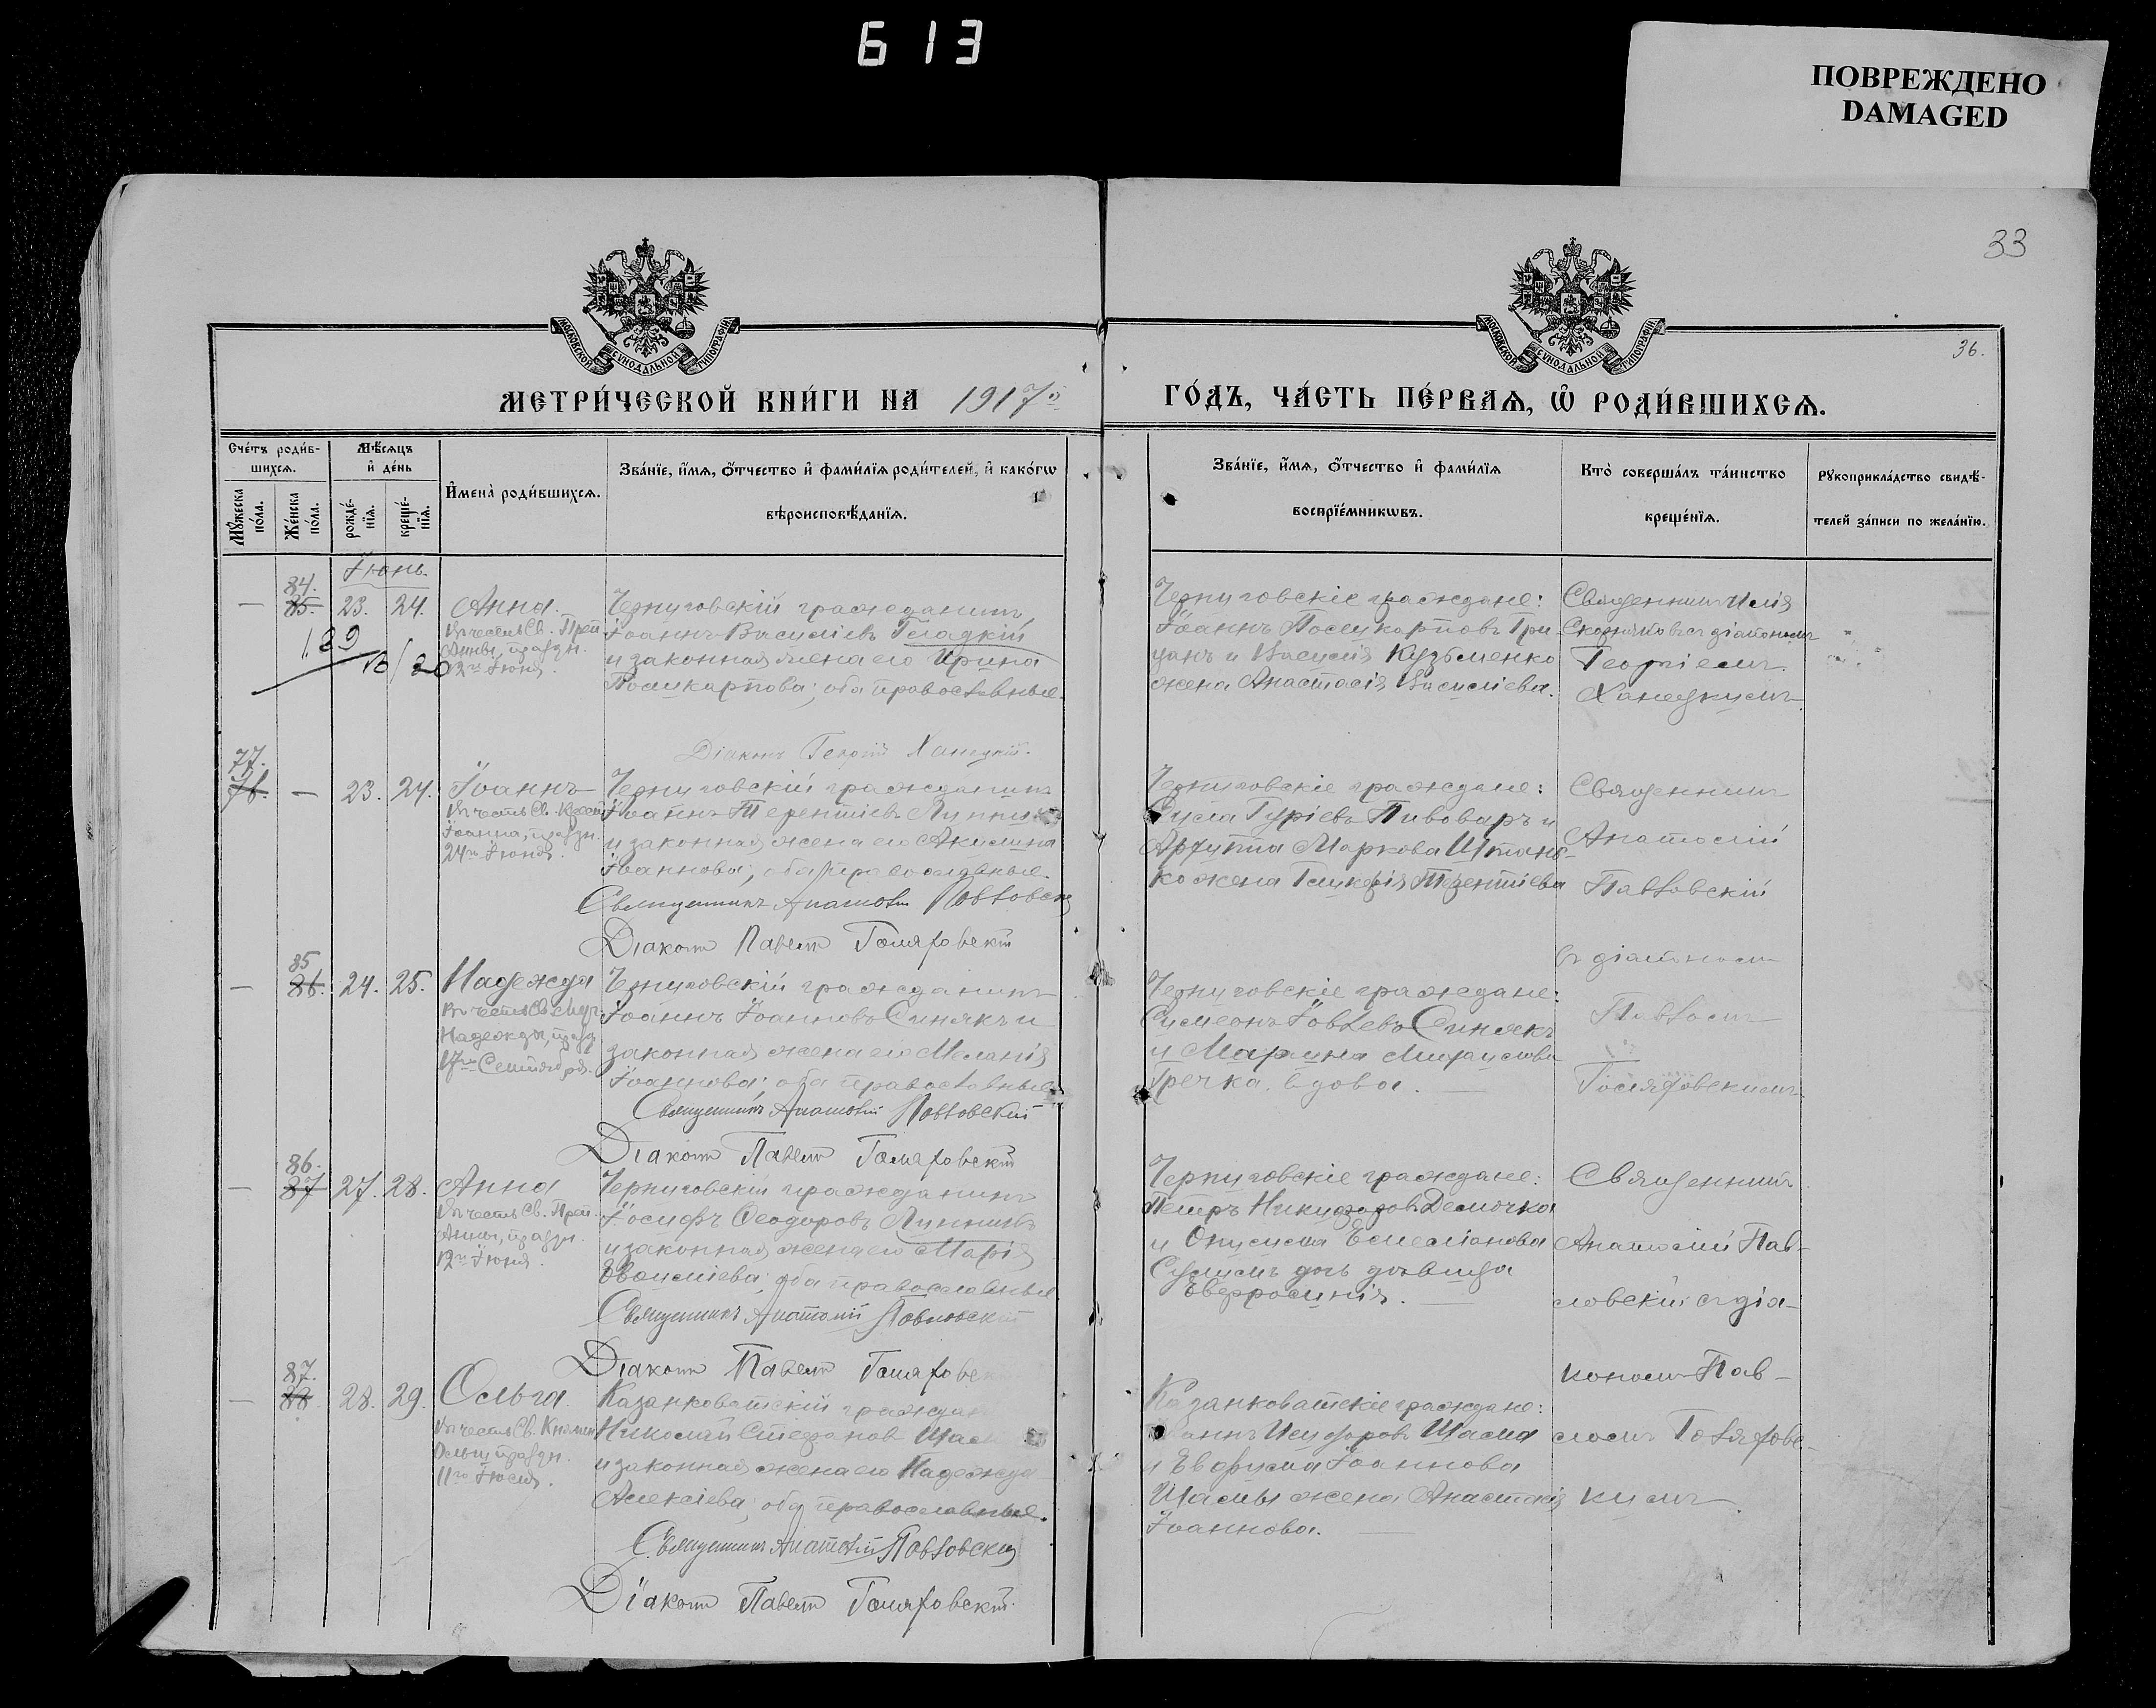 613
ПОВРЕЖДЕНО
DAMAGED
33
36.
МОСКОВСКОЙ СУНОДАЛЬНОЙ ТИПОГРАФІИ
МОСКОВСКОЙ СУНОДАЛЬНОЙ ТИПОГРАФІИ
МЕТРИ́ЧЕСКОЙ КНИ́ГИ НА 1917й
ГО́ДЪ, ЧА́СТЬ ПЕ́РВАѦ, Ѡ РОДИ́ВШИХСѦ.
Сче́тъ роди́в-
шихсѧ.
Мꙋжеска по́ла.
Же́нска по́ла.
Мѣ́сѧцъ
и҆ де́нь
рожде́-
нїѧ.
креще́-
нїѧ.
И҆мена̀ роди́вшихсѧ.
Зва́нїе, и҆́мѧ, ѻ҆́тчество и҆ фами́лїѧ роди́телей, и҆ како́гѡ
вѣроисповѣ́данїѧ.
Зва́нїе, и҆́мѧ, ѻ҆́тчество и҆ фами́лїѧ
воспрїе́мникѡвъ.
Кто̀ соверша́лъ та́инство
креще́нїѧ.
Рꙋкоприкла́дство свидѣ́-
телей за́писи по жела́нїю.
Іюнь.
84.
— 85. 23. 24. Анна.
Въ честь Св. Преп.
Анны, праздн.
12го Іюня.
189
10/20
Черниговскій гражданинъ
Іоаннъ Василіевъ Гладкій
и законная жена его Ирина
Поликарпова; оба православные.
Діаконъ Георгій Ханецкій.
Черниговскіе граждане:
Іоаннъ Поликарповъ Гри-
цанъ и Василія Кузьменко
жена Анастасія Василіева.
Священникъ Илія
съ діакономъ
Георгіемъ
Ханецкимъ
77.
76. — 23. 24. Іоаннъ
Въ честь Св. Крест.
Іоанна, праздн.
24го Іюня.
Черниговскій гражданинъ
Іоаннъ Терентіевъ
и законная жена его Акилина
Іоаннова; оба православные.
Священникъ Анатолій Павловскій
Діаконъ Павелъ Голяховскій
Черниговскіе граждане:
Сула Гуріевъ Пивоваръ и
Маркова Штань-
ко жена Гликерія Терентіева
Священникъ
Анатолій
Павловскій
съ діакономъ
Павломъ
Голяховскимъ
85
— 86. 24. 25. Надежда
Въ честь Св. Муч.
Надежды, празд.
17го Сентября.
Черниговскій гражданинъ
Іоаннъ Іоанновъ Синякъ и
законная жена его Меланія
Іоаннова; оба православные.
Священникъ Анатолій Павловскій
Діаконъ Павелъ Голяховскій
Черниговскіе граждане:
Симеонъ Іовлевъ Синякъ
и Марина Михаилова
Гречка вдова.
86.
— 87 27. 28. Анна
Въ честь Св. Преп.
Анны, праздн.
12го Іюня.
Черниговскій гражданинъ
Іосифъ Ѳеодоровъ Линникъ
и законная жена его Марія
оба православные
Священникъ Анатолій Павловскій
Діаконъ Павелъ Голяховскій
Черниговскіе граждане:
Петръ Никифоровъ Демочка
и Онисима Емеліанова
дочь дѣвица
Евфросинія.
Священникъ
Анатолій Пав-
ловскій съ діа-
кономъ Пав-
ломъ Голяховс-
кимъ
87.
— 88 28. 29. Ольга.
Въ честь Св. Княгин.
Ольги праздн.
11го Іюля.
Казанковатскій граждан
Николай Стефановъ
и законная жена его Надежда
Алексіева; оба православные.
Священникъ Анатолій Павловскій
Діаконъ Павелъ Голяховскій.
Казанковатскіе граждане:
Шасла
и Евфима Іоаннова
жена Анастасія
Іоаннова.